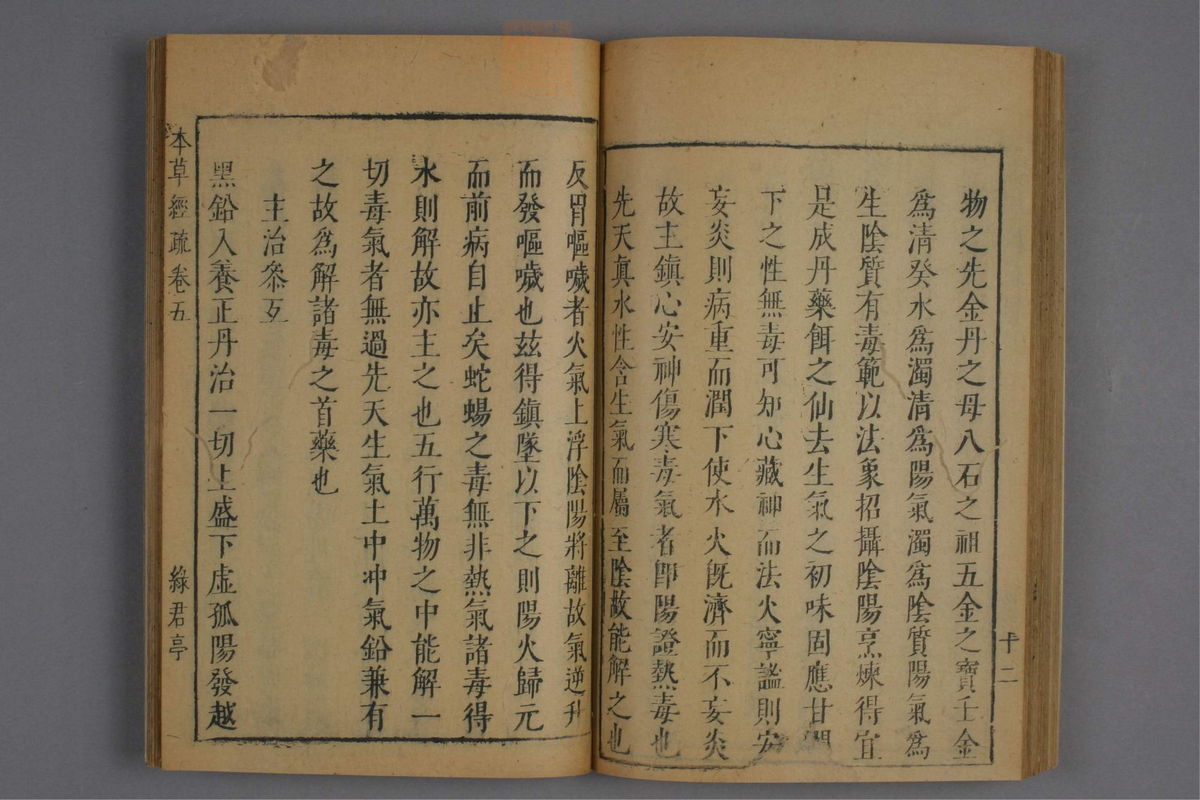 物之先金丹之母八石之祖五金之寶壬金
爲清癸水爲濁清爲陽氣濁爲陰質陽氣爲
生陰質有毒範以法象招攝陰陽烹煉得宜
是成丹藥餌之仙去生氣之初味固應甘潤
下之性無毒可知心藏神而法火寧謐則安
妄炎則病重而潤下使水火旣濟而不妄炎
故主鎮心安神傷寒毒氣者卽陽證熱毒也
先天眞水性含生氣而屬至陰故能解之也
十二
反胃嘔噦者火氣上浮陰陽將離故氣逆升
而發嘔噦也玆得鎮墜以下之則陽火歸元
而前病自止矣蛇蜴之毒無非熱氣諸毒得
水則解故亦主之也五行萬物之中能解一
切毒氣者無過先天生氣土中冲氣鉛兼有
之故爲解諸毒之首藥也
主治叅互
黑鉛入養正丹治一切上盛下虛孤陽發越
本草經疏卷五
綠君亭